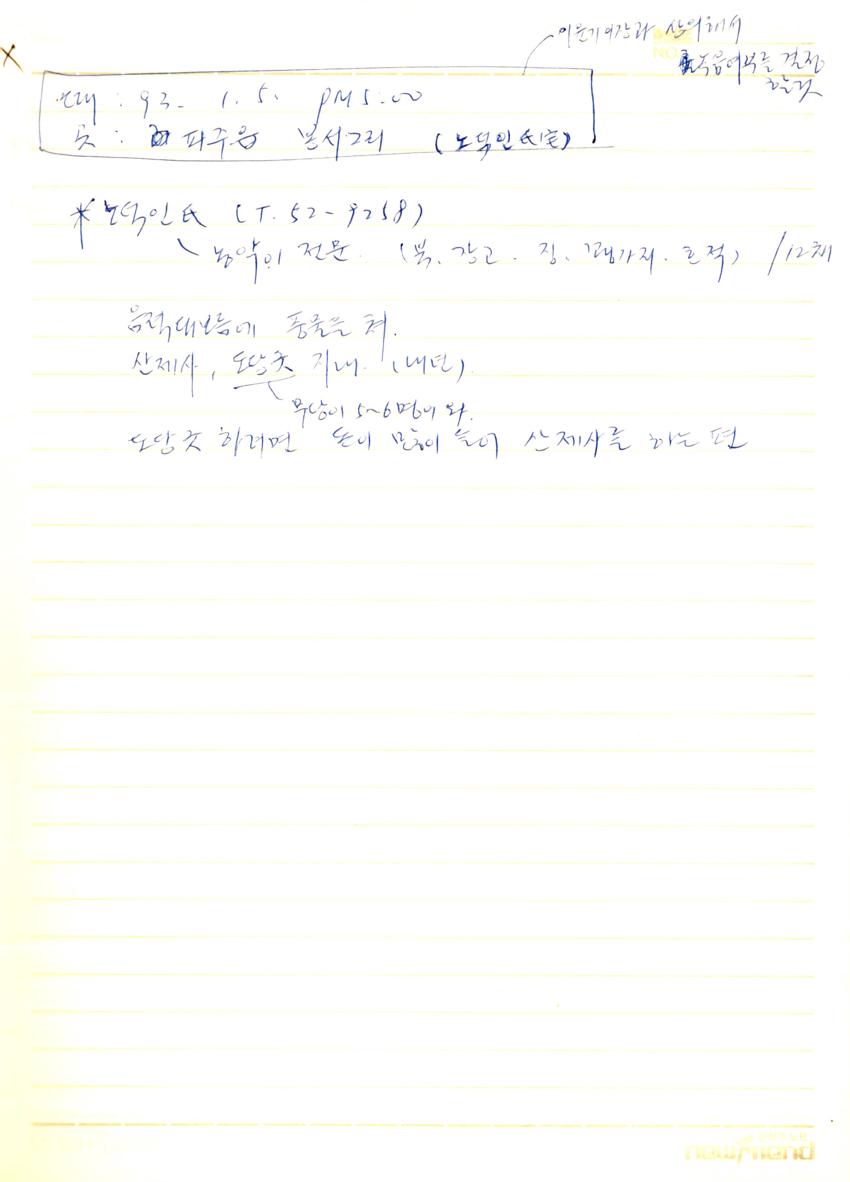 이문기 이장과 상의해서
녹음여부를 결정
할것
때 : 93. 1. 5. PM 5:00
곳 : 파주읍 봉서2리 (노덕인氏宅)
* 노덕인氏 (T. 52-9258)
농악의 전문. (북. 장고. 징. 꽹가리. 호적) / 12채
음력대보름에 풍물을 쳐.
산제사, 도당굿 지내. (내년).
무당이 5~6명이 와.
도당굿 하려면 돈이 많이 들어 산제사를 하는 편
NO.
newfriend